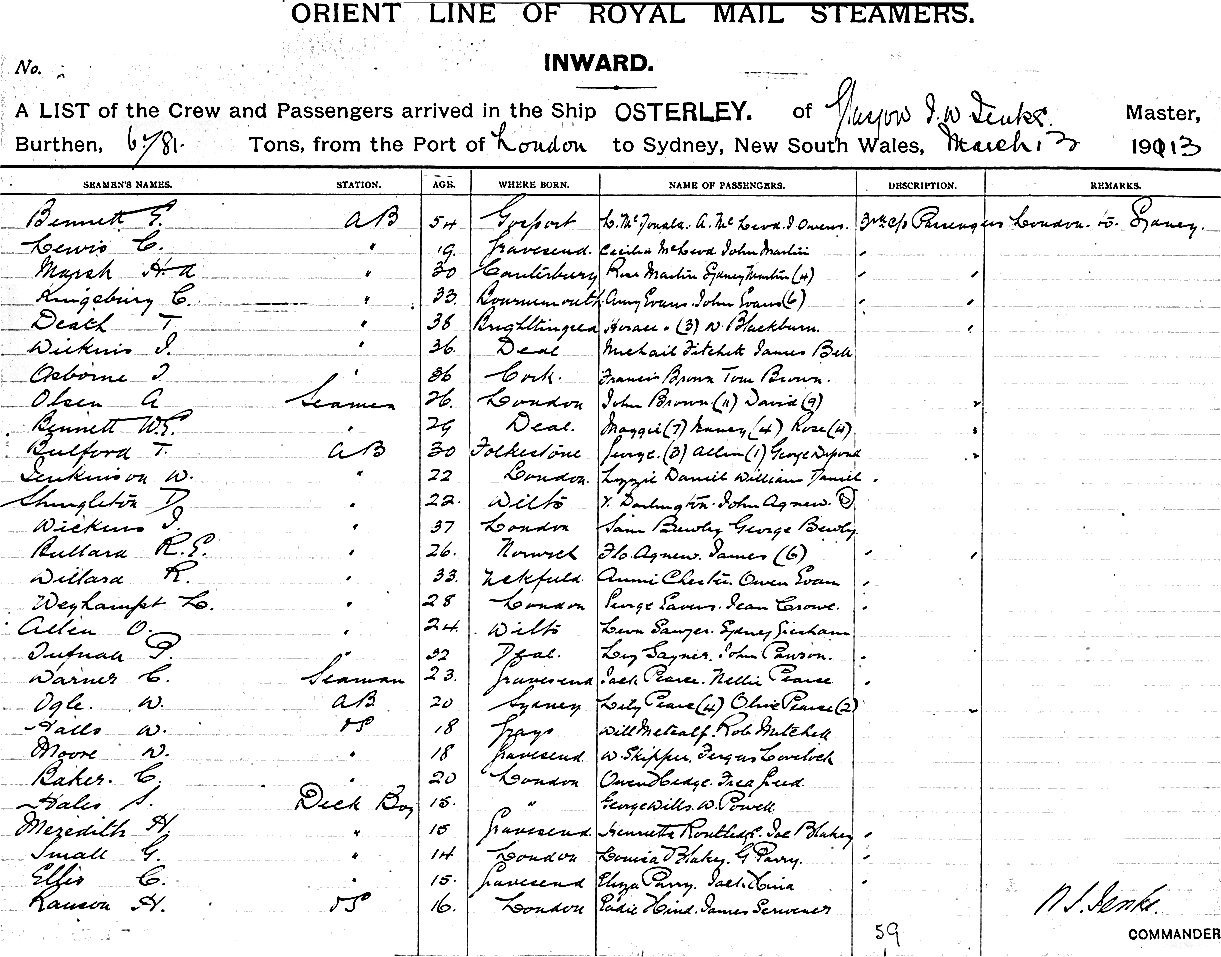 ORIENT LINE OF ROYAL MAIL STEAMERS.
INWARD.
No.
A LIST of the Crew and Passengers arrived in the Ship OSTERLEY. of Glasgow J. W Jenks. Master,
Burthen, 6781. Tons, from the Port of London to Sydney, New South Wales, March 13 1913
SEAMEN'S NAMES. STATION. AGE. WHERE BORN. NAME OF PASSENGERS. DESCRIPTION. REMARKS.
Bennett G. AB 54 Gosport A. McLeod. J Owens. 3rd c/s Passengers London to Sydney.
Lewis C. " 19. Gravesend. Cecilia McLeod John Martin "
Marsh H. A " 30 Canterbury Rose Martin Sydney Martin (4) " "
Kingsbury C. " 33. Bournemouth Amy Evans. John Evans (6) " "
Death T " 38 Horace " (3) W. Blackburn. "
Wickins J. " 36. Deal Michail Fitchett James Bell
Osborne J. " 36 Cork. Francis Brown Tom Brown.
Olsen A Seaman 26. London John Brown (11) David (9) "
Bennett W.E. " 29 Deal. Maggie (7) Nancy (4) Rose (4) "
Bulford T. AB 30 Folkestone George. (3) Allin (1) George "
Jenkinson W. " 22 London. Lizzie Daniel William Daniel "
Shingleton D " 22. Wilts Darlington. John Agnew.
Wickins J. " 37 London Sam Bewley George Bewley
Bullard R. E. " 26. Norwich Flo. Agnew. James (6) " "
Willard R. " 33. Annie Chester. Owen Evan "
Weyhampt L. " 28 London George Eavens. Jean Crowe. "
Allen O. " 24. Wilts Leon Sawyer. Sydney Gresham
Tufnall P. " 32 Deal. John Pawson. "
Warner C. Seaman 23. Gravesend Jack Pearce. Nellie Pearce "
Ogle. W. AB 20 Sydney Lily Pearce (4) Olive Pearce (2) "
Halls W. OS 18 Grays Will Metcalf. Rob Mitchell
Moore W. " 18 Gravesend. W Skipper. Fergus Lovelock
Baker. C. " 20 London Owen Hedge. Fred
Hales S. Deck Boy 15. " George Wills. W. Powell
Meredith H. " 15 Gravesend. Henrietta Routledge. Joe Blakey "
Small G. " 14 London Louisa Blakey. G Parry. "
Ellis C. " 15. Gravesend Eliza Parry. Jack Hind "
Ranson H. OS 16. London Eadie Hind. James Scrivener
59
Jenks.
COMMANDER